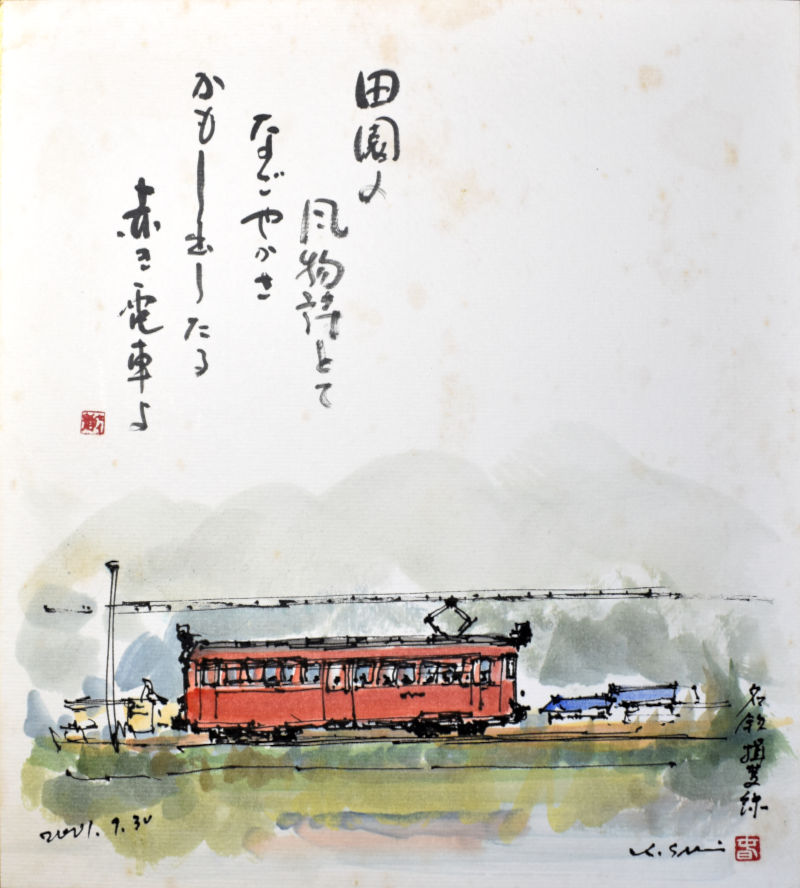 田園の
風物詩とて
なごやかさ
かもし出したる
赤き電車よ
名鉄揖斐線
2001. 9. 30